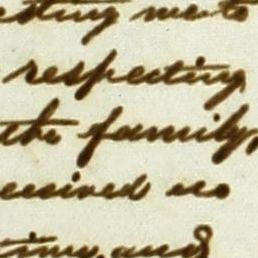 esting me to
respecting
the family,
eceived no
time, and